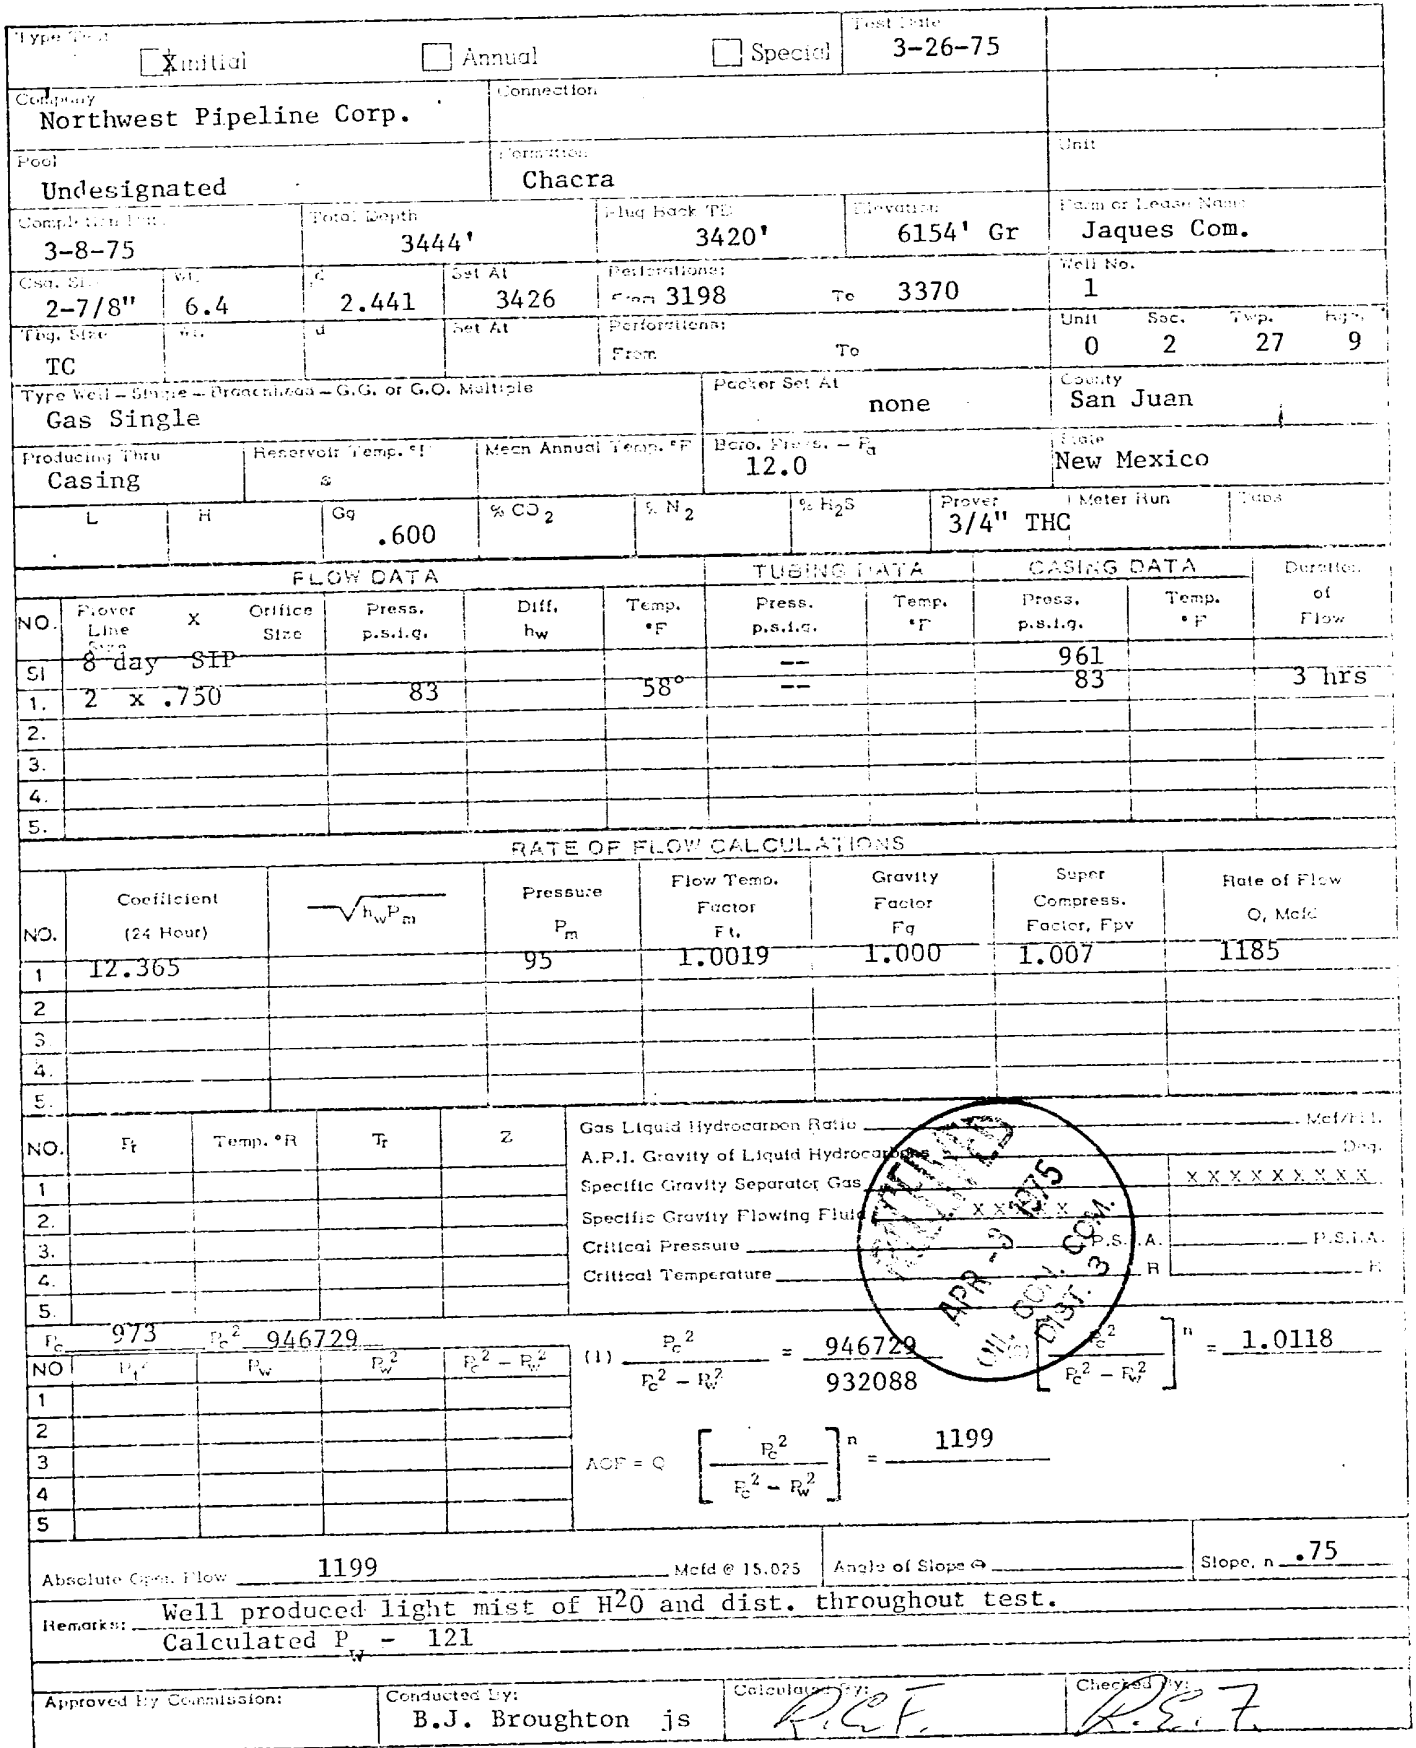 Type Test
X Initial
Annual
Special
Test Date
3-26-75
Company
Northwest Pipeline Corp.
Connection
Pool
Undesignated
Formation
Chacra
Unit
Completion Date
3-8-75
Total Depth
3444'
Plug Back TD
3420'
Elevation
6154' Gr
Farm or Lease Name
Jaques Com.
Csg. Size
2-7/8"
Wt.
6.4
d
2.441
Set At
3426
Perforations:
From 3198 To 3370
Well No.
1
Tbg. Size
TC
Wt.
d
Set At
Perforations:
From To
Unit Sec. Twp. Rge.
0 2 27 9
Type Well – Single – Bradenhead – G.G. or G.O. Multiple
Gas Single
Packer Set At
none
County
San Juan
Producing Thru
Casing
Reservoir Temp. °F
Mean Annual Temp. °F
Baro. Press. – Pa
12.0
State
New Mexico
L
H
Gg
.600
% CO2
% N2
% H2S
Prover
3/4" THC
Meter Run
Taps
FLOW DATA
TUBING DATA
CASING DATA
Duration of Flow
NO. Prover Line Size X Orifice Size Press. p.s.i.g. Diff. hw Temp. °F Press. p.s.i.g. Temp. °F Press. p.s.i.g. Temp. °F
SI 8 day SIP -- 961
1. 2 x .750 83 58° -- 83 3 hrs
2.
3.
4.
5.
RATE OF FLOW CALCULATIONS
NO. Coefficient (24 Hour) √hwPm Pressure Pm Flow Temp. Factor Ft. Gravity Factor Fg Super Compress. Factor, Fpv Rate of Flow Q, Mcfd
1 12.365 95 1.0019 1.000 1.007 1185
2
3
4.
5.
NO. Pr Temp. °R Tr Z
1
2.
3.
4.
5.
Gas Liquid Hydrocarbon Ratio Mcf/bbl.
A.P.I. Gravity of Liquid Hydrocarbons Deg.
Specific Gravity Separator Gas X X X X X X X X X
Specific Gravity Flowing Fluid X X X X X
Critical Pressure P.S.I.A. P.S.I.A.
Critical Temperature R R
RECEIVED
APR -3 1975
OIL CON. COM.
DIST. 3
Pc 973 Pc² 946729
NO Pt² Pw Pw² Pc² – Pw²
1
2
3
4
5
(1) Pc² / Pc² – Pw² = 946729 / 932088
[Pc² / Pc² – Pw²]ⁿ = 1.0118
AOF = Q [Pc² / Pc² – Pw²]ⁿ = 1199
Absolute Open Flow 1199 Mcfd @ 15.025
Angle of Slope Θ
Slope, n .75
Remarks: Well produced light mist of H²O and dist. throughout test.
Calculated Pw - 121
Approved By Commission:
Conducted By:
B.J. Broughton js
Calculated By:
Checked By:
R.E.F.